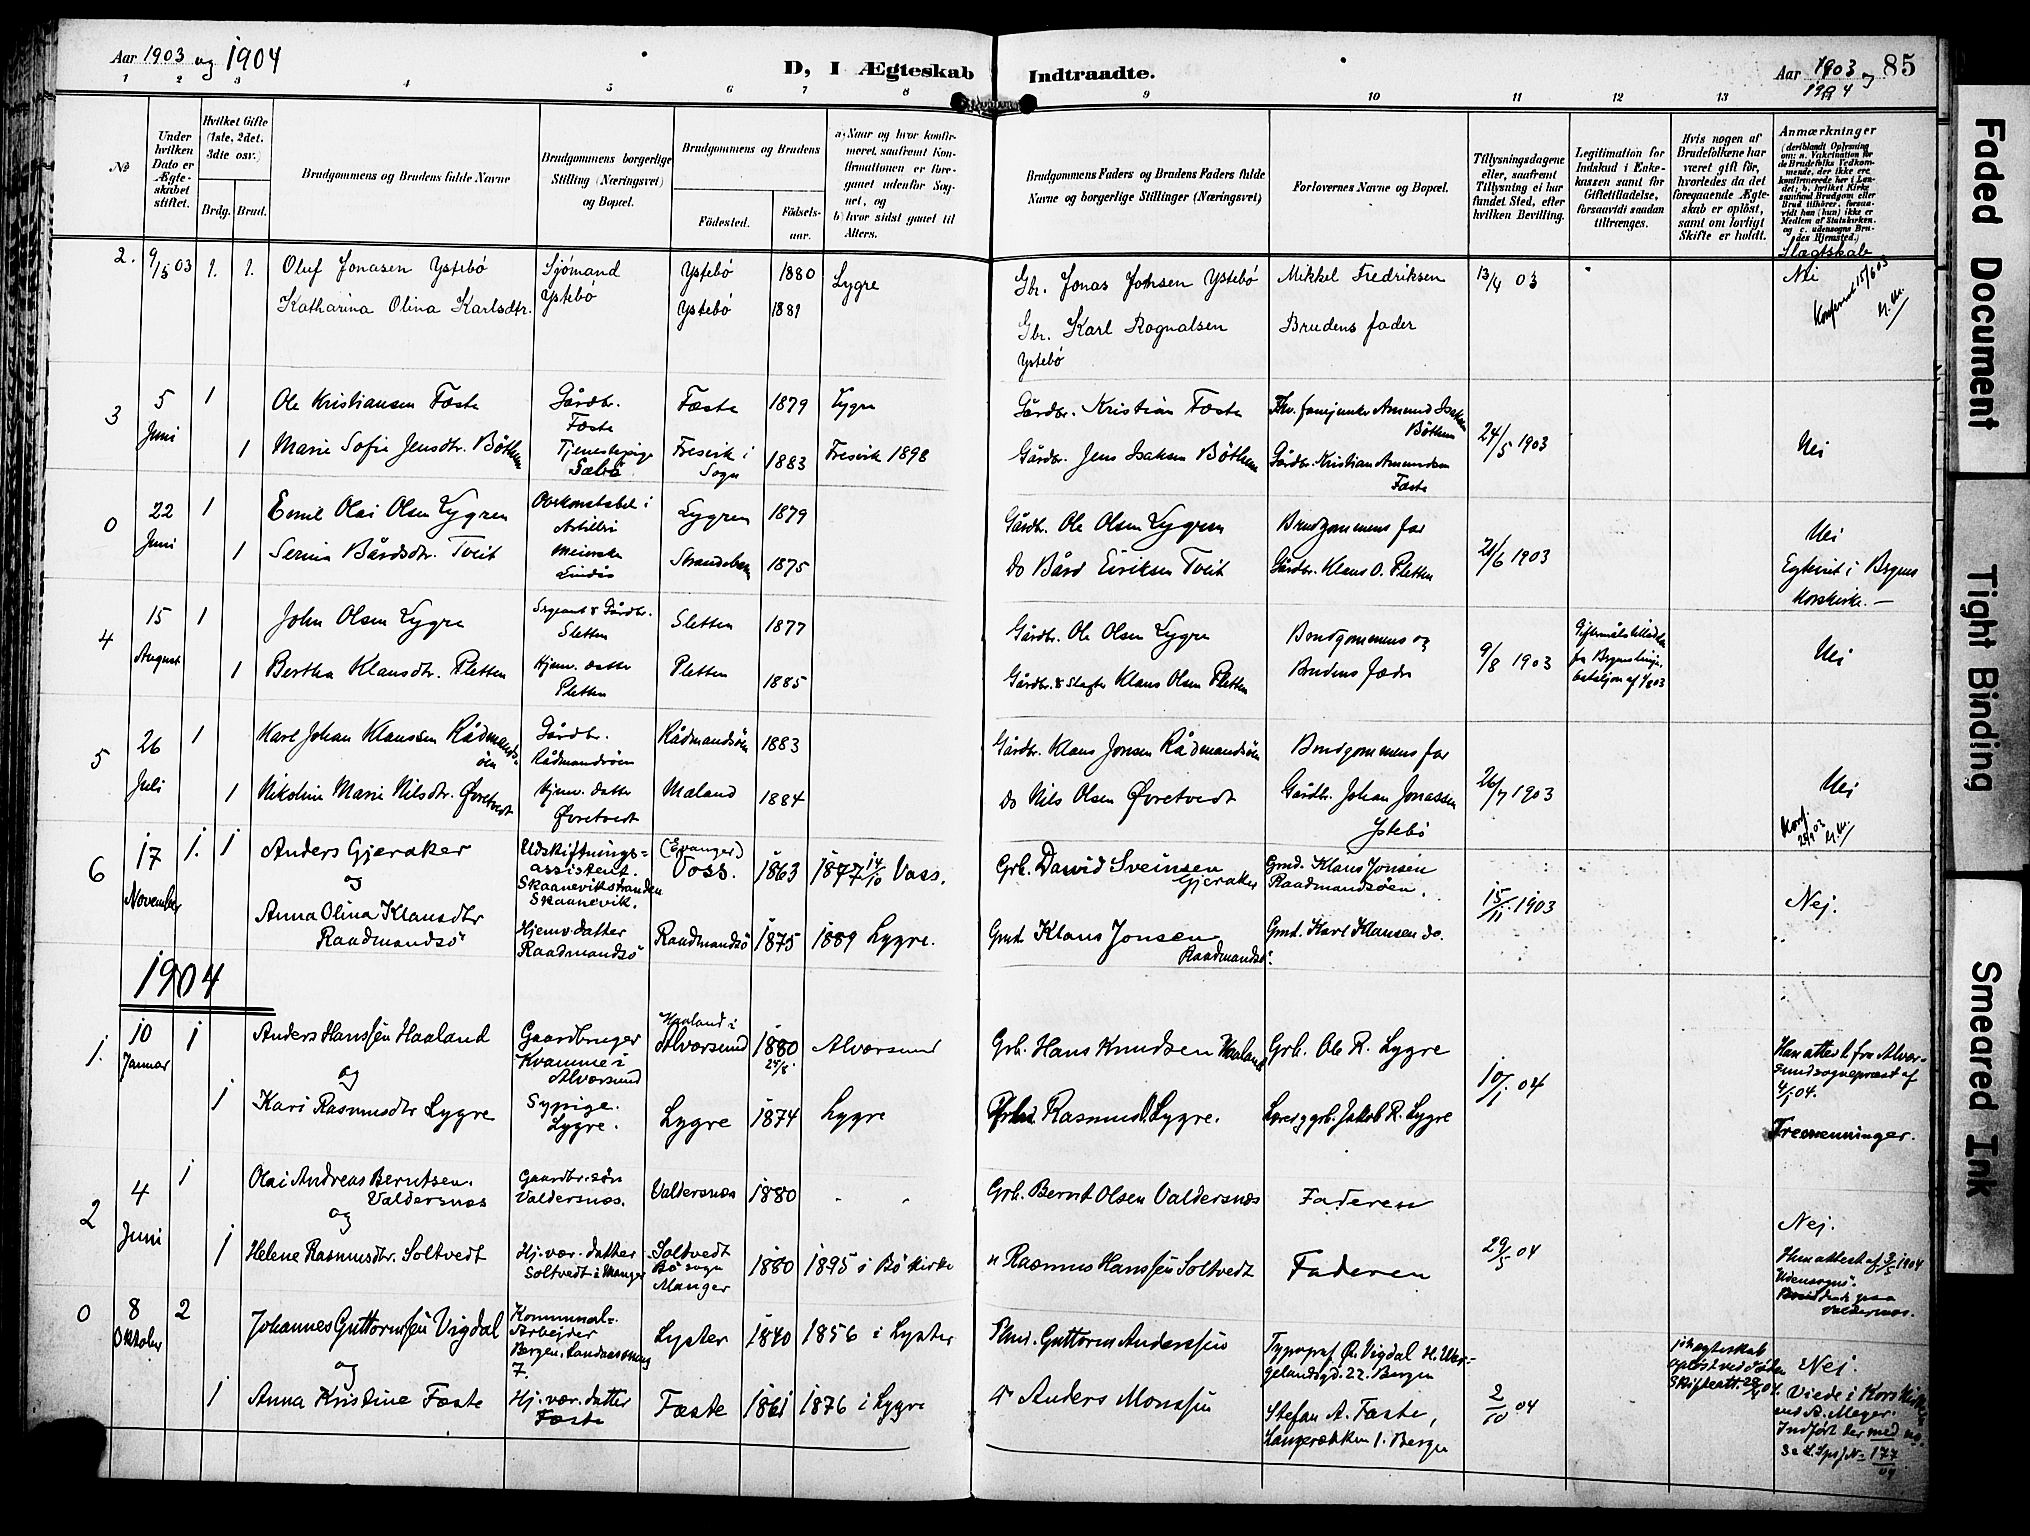 Aar 1903 og 1904
D, I Ægteskab Indtraadte.
Aar 1903 og 1904
85
1 2 3 4 5 6 7 8 9 10 11 12 13
No
Under hvilken Dato er Ægteskabet stiftet.
Hvilket Gifte (1ste, 2det, 3die osv.)
Brdg. Brud.
Brudgommens og Brudens fulde Navne
Brudgommens borgerlige Stilling (Næringsvei) og Bopæl.
Brudgommens og Brudens
Födested.
Födselsaar.
a) Naar og hvor konfirmeret, saafremt Konfirmationen er foregaaet udenfor Sognet, og
b) hvor sidst gaaet til Alters.
Brudgommens Faders og Brudens Faders fulde Navne og borgerlige Stillinger (Næringsvei)
Forlovernes Navne og Bopæl.
Tillysningsdagene eller, saafremt Tillysning ei har fundet Sted, efter hvilken Bevilling.
Legitimation for Indskud i Enkekassen samt for Giftetilladelse, forsaavidt saadan tiltrænges.
Hvis nogen af Brudefolkene har været gift för, hvorledes da det foregaaende Ægteskab er oplöst, samt om lovligt Skifte er holdt.
Anmærkninger
(deriblandt Oplysning om: a. Vakcination for de Brudefolks Vedkommende, der ikke ere konfirmerede her i Landet; b. hvilket Kirkesamfund Brudgom eller Brud tilhörer, forsaavidt han (hun) ikke er Medlem af Statskirken, og c. udensogns Brudes Hjemsted.)
Slagtskab
2. 9/5 03 1. 1. Oluf Jonasen Ystebö Sjömand Ystebö 1880 Lygre Gbr. Jonas Johsen Ystebö Mikkel Fredriksen 13/4 03 Nei
Katharina Olina Karlsdtr. Ystebö Ystebö 1881 Gbr. Karl Rognalsen Brudens fader
Ystebö
Konferert 15/6 03
3 5 Juni 1 Ole Kristiansen Fæste Gårdbr. Fæste Fæste 1879 Lygre Gårdbr. Kristian Fæste Amund Isaksen Böthun
1 Marie Sofie Jensdtr. Böthun Tjenestepige Sæbö Fresvik i Sogn 1883 Fresvik 1898 Gårdbr. Jens Isaksen Böthun Gårdbr. Kristian Amundsen Fæste 24/5 1903 Nei
0 22 Juni 1 Emil Olai Olsen Lygren Overkonstabel i Artilleri Lygren 1879 Gårdbr. Ole Olsen Lygren Brudgommens far Nei
1 Serina Bårdsdtr. Tveit Lindås Strandebarm 1875 Do Bård Eiriksen Tveit Gårdbr. Klaus O. Pletten 21/6 1903 Egteviet i Bergens Korskirke. —
4 15 August 1 John Olsen Lygre Sergeant & Gårdbr. Sletten Sletten 1877 Gårdbr. Ole Olsen Lygre Brudgommens og
1 Bertha Klausdtr. Pletten Hjemv. datter Pletten Pletten 1885 Gårdbr. & Slagter Klaus Olsen Pletten Brudens fædre 9/8 1903 Giftermålstilladelse fra Bergens linje bataljon af 1/8 03 Nei
5 26 Juli 1 Karl Johan Klaussen Rådmandsöen Gårdbr. Rådmandsöen Rådmandsöen 1883 Gårdbr. Klaus Jonsen Rådmandsöen Brudgommens far
1 Nikoline Marie Nilsdtr. Øvretvedt Hjemv. datter Øvretvedt Maland 1884 Do Nils Olsen Øvretvedt Gårdbr. Johan Jonassen Ystebö 26/7 1903 Nei
Konf.
6 17 November 1. 1 Anders Gjeraker Udskiftningsassistent. Skaanevikstranden Skaanevik. (Evanger) Voss. 1863 1877 14/10 Voss. Grb. David Sveinsen Gjeraker Gmd. Klaus Jonsen Raadmandsöen.
og
Anna Olina Klausdtr Raadmandsö Hjemv. datter Raadmandsö Raadmandsö 1875 1889 Lygre. Gmd. Klaus Jonsen Raadmandsö. Gmd. Karl Klausen do. 15/11 1903 Nej.
1904
1. 10 Januar 1 Anders Hanssen Haaland Gaardbruger Kvamme i Alversund Haaland i Alversund 1880 24/8. Alversund Grb. Hans Knudsen Haaland Grb. Ole R. Lygre
og
1 Kari Rasmusdtr Lygre Sypige. Lygre. Lygre 1874 Lygre Rasmus Lygre. grb. Jakob R. Lygre 10/1 04
Han attest fra Alversund sognepræst af 4/1 04.
Tremenninger.
2 4 Juni 1 Olai Andreas Berntsen. Valdersnæs Gaardbr. sön Valdersnæs. Valdersnæs 1880 Grb. Bernt Olsen Valdersnæs Faderen
og
1 Helene Rasmusdtr. Soltvedt Hj. vær. datter Soltvedt i Manger Soltvedt Bö sogn Manger 1880 1895 i Bö kirke " Rasmus Hanssen Soltvedt Faderen 29/5 04
Nej.
Hun attest af 3/5 1904
Udensogns.
Valdersnæs.
0 8 Oktober 2 Johannes Guttormsen Vigdal Kommunal-Arbejder Bergen, Landaasveien 7. Lyster 1840 1856 i Lyster Guttorm Anderssen Typograf O. Vigdal H. Wergelandsgd. 22. Bergen
og
1 Anna Kristine Fæste Hj. vær. datter Fæste Fæste 1861 1876 i Lygre Anders Monssen Stefan A. Fæste, 1. Bergen 2/10 04
ægteskab oplöst ved döden Skifteatt. 28/9 04.
Nej.
Viede i Korskirken ved A. Meyer.
Indfört her med
177/04
Faded Document
Tight Binding
Smeared Ink